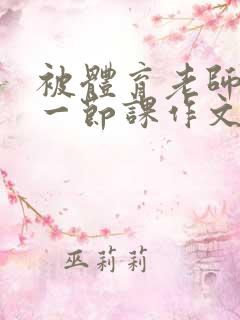 被體育老師
一節課作文
巫莉莉